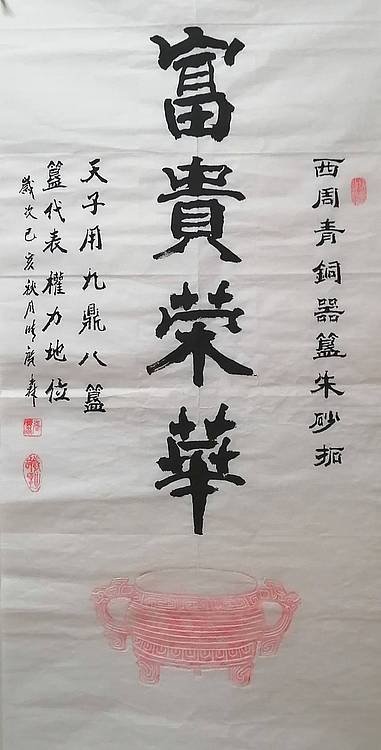 西周青銅器簋朱砂拓
富貴榮華
天子用九鼎八簋
簋代表權力地位
歲次己亥秋月